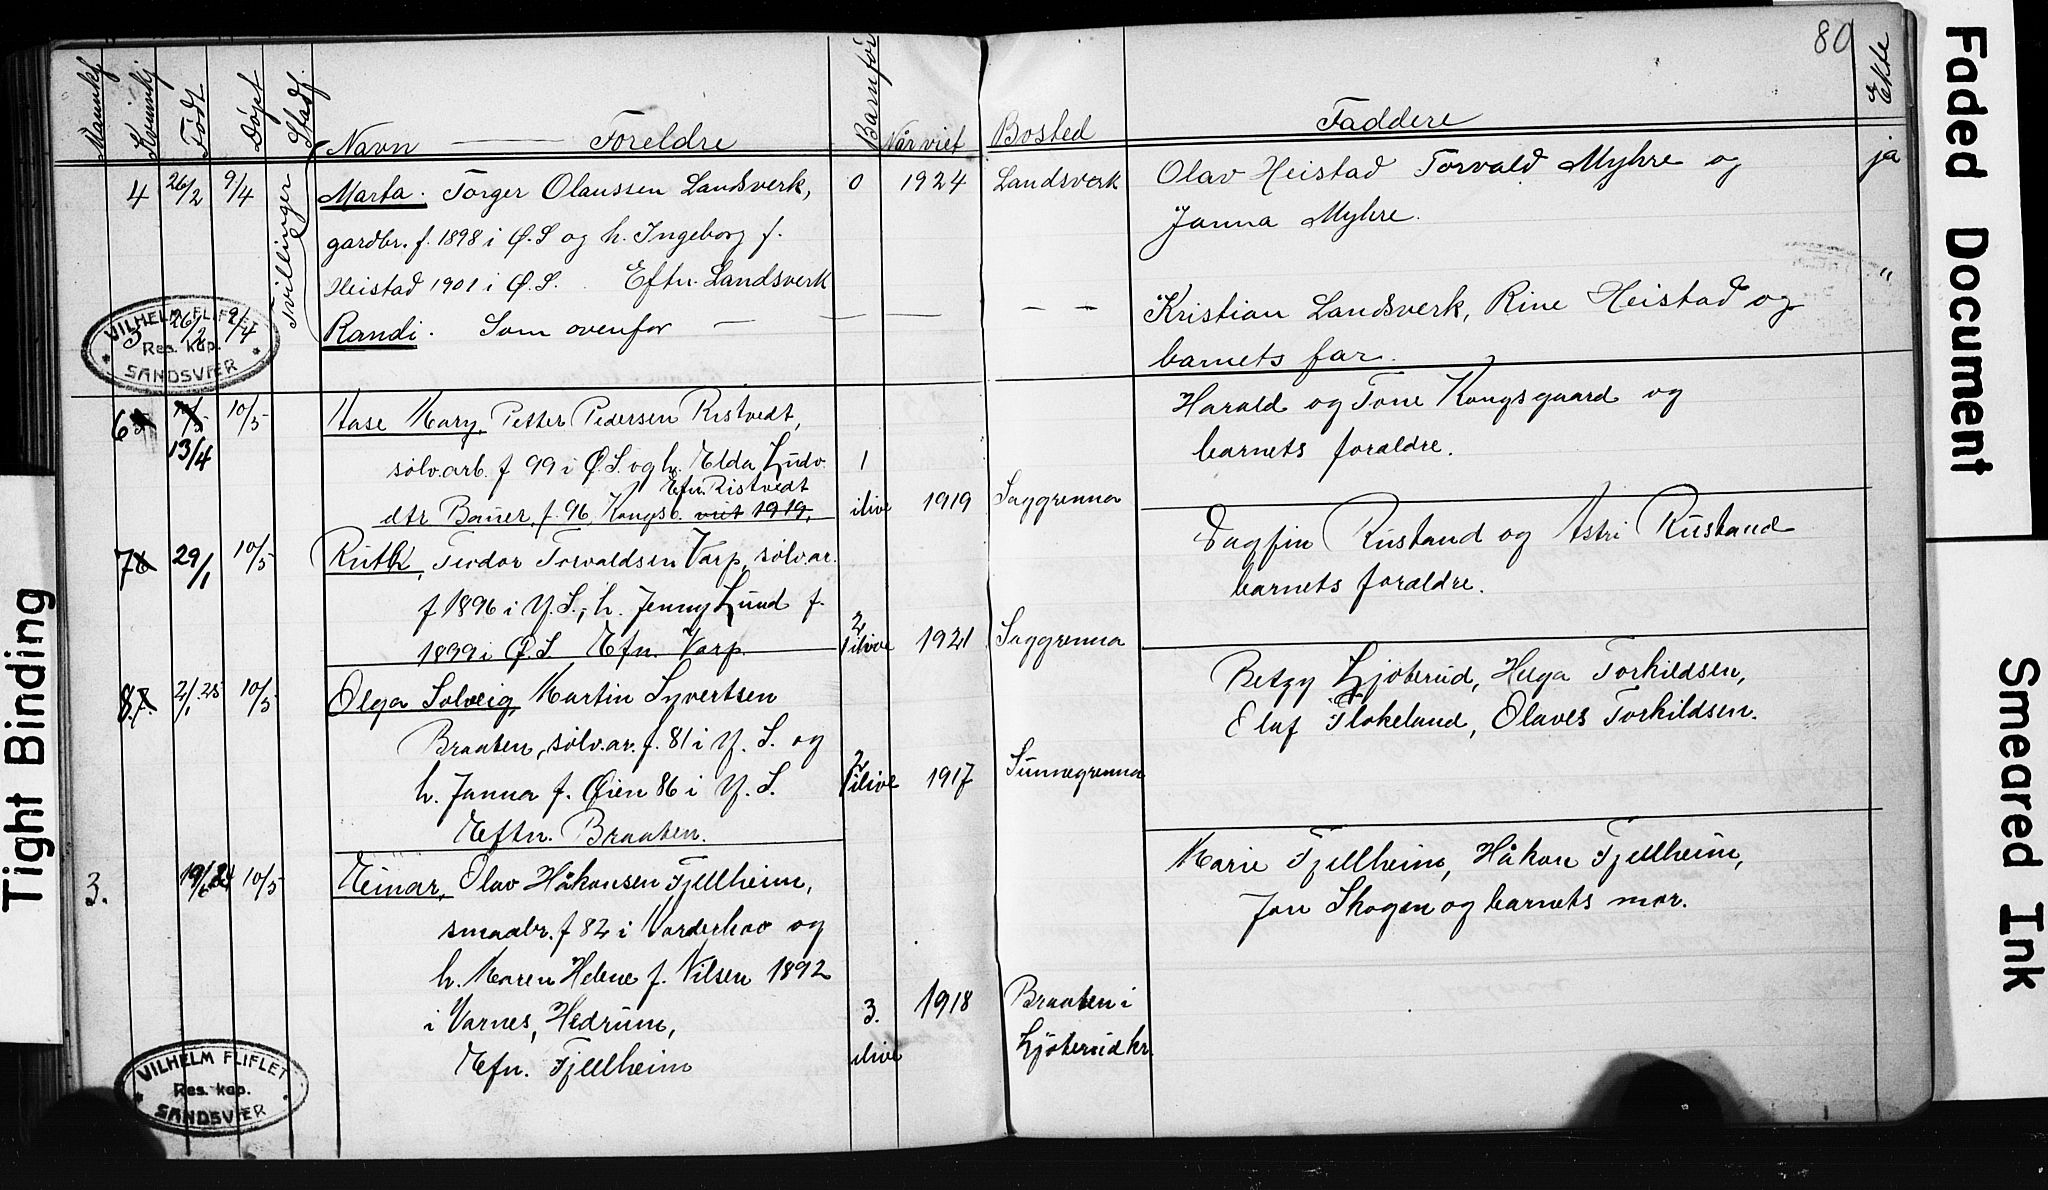 80
Mannkj. Kvinnkj. Født Døpt Stadf. Navn — Foreldre Barn før Når viet Bosted Faddere Ekte
4 26/2 9/4 Marta. Torger Olaussen Landsverk, 0 1924 Landsverk Olav Heistad Torvald Myhre og ja
gardbr. f. 1898 i Ø.S og h. Ingeborg f. Janna Myhre.
Tvillinger
Heistad 1901 i Ø.S. Eftn. Landsverk
5 26/2 9/4 Randi. Som ovenfor — — — — — Kristian Landsverk, Rine Heistad og "
barnets far.
VILHELM FLIFLET
Res. kap.
SANDSVÆR
6 10/5 Aase Mary, Petter Pedersen Ristvedt, Harald og Tone Kongsgaard og
13/4 sølvarb. f 99 i Ø.S. og h. Elda Ludv. 1 barnets foreldre.
Efn. Ristvedt
dtr Bauer, f. 96, Kongsb. viet 1919, ilive 1919 Saggrenna
7 29/1 10/5 Ruth, Teodor Torvaldsen Varp, sølvar. Dagfin Rustand og Astri Rustand
f 1896 i Y.S., h. Jenny Lund f. barnets foreldre.
1899 i Ø.S Efn. Varp. 2 ilive 1921 Saggrenna
8 2/1 25 10/5 Olga Solveig, Martin Syvertsen Betzy Ljøterud, Helga Torkildsen,
Braaten, sølvar. f. 81 i Y. S. og Elaf Flokeland, Olaves Torkildsen.
h. Janna f. Øien 86 i Y. S. 2 ilive 1917 Sunnegrenna
Eftn. Braaten.
3. 19/6 24 10/5 Einar, Olav Håkonsen Fjellheim, Marie Fjellheim, Håkon Fjellheim,
smaabr. f 82 i Norderhov og Jon Skogen og barnets mor.
h. Maren Helene f. Nilsen 1892
i Varnes, Hedrum, 3. 1918 Braaten i
Efn. Fjellheim ilive Ljøterudkr.
VILHELM FLIFLET
Res. kap.
SANDSVÆR
Tight Binding
Faded Document
Smeared Ink